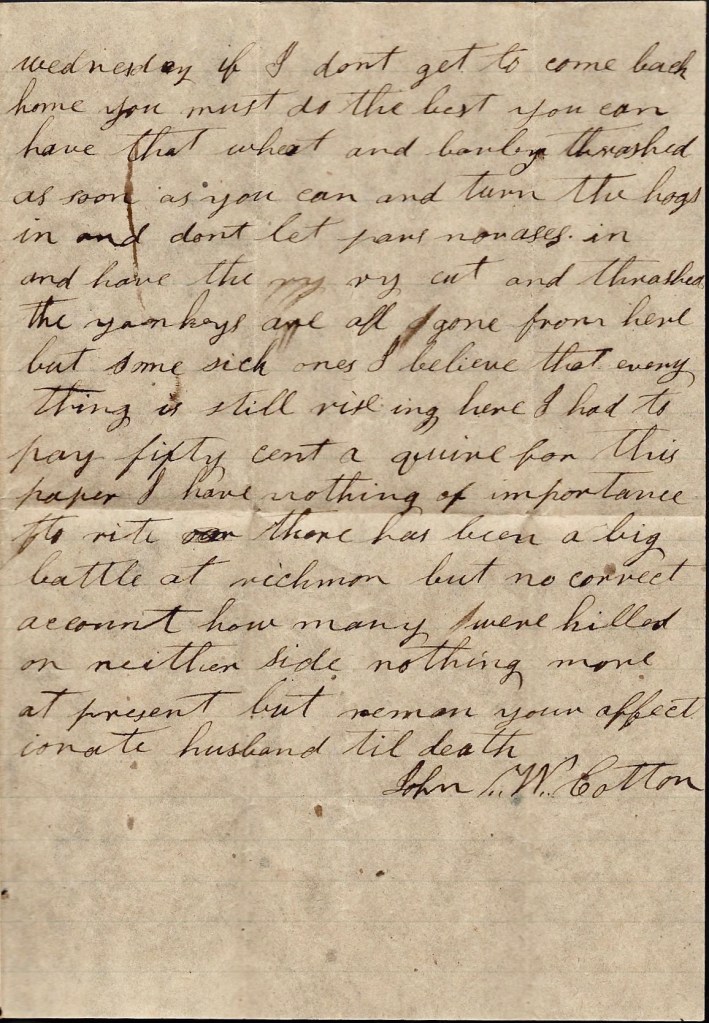 wednesday if I dont get to come back
home you must do the best you can
have that wheat and barley thrashed
as soon as you can and turn the hogs
in and dont let pars nor ases in
and have the ry cut and thrashed
the yankeys are all gone from here
but some sick ones I believe that every
thing is still rise ing here I had to
pay fifty cent a quire for this
paper I have nothing of importance
to rite there has been a big
battle at richmon but no correct
account how many were killed
on neither side nothing more
at present but reman your affect
ionate husband til death
John W. Cotton